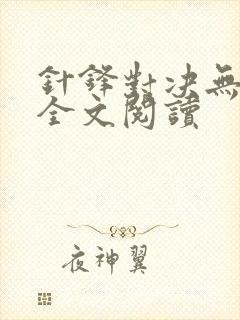 針鋒對決無
全文閱讀
夜神翼